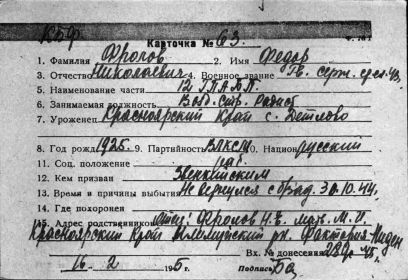 КБФ
Карточка № 63.
1. Фамилия Фролов 2. Имя Федор
3. Отчество Николаевич 4. Военное звание Гв. серж.
5. Наименование части 12 ГПАБП.
6. Занимаемая должность Возд. стр. радист
7. Уроженец Красноярский край с.
8. Год рожд. 1925. 9. Партийность ВЛКСМ 10. Национ. русский
11. Соц. положение раб.
12. Кем призван
13. Время и причины выбытия Не вернулся с б/зад. 30.10.44.
14. Где похоронен
15. Адрес родственников отец: Фролов Н. мать М. И.
Красноярский край рн. Фактория
Вх. № донесения 239
16 - 2 195 г. Подпись